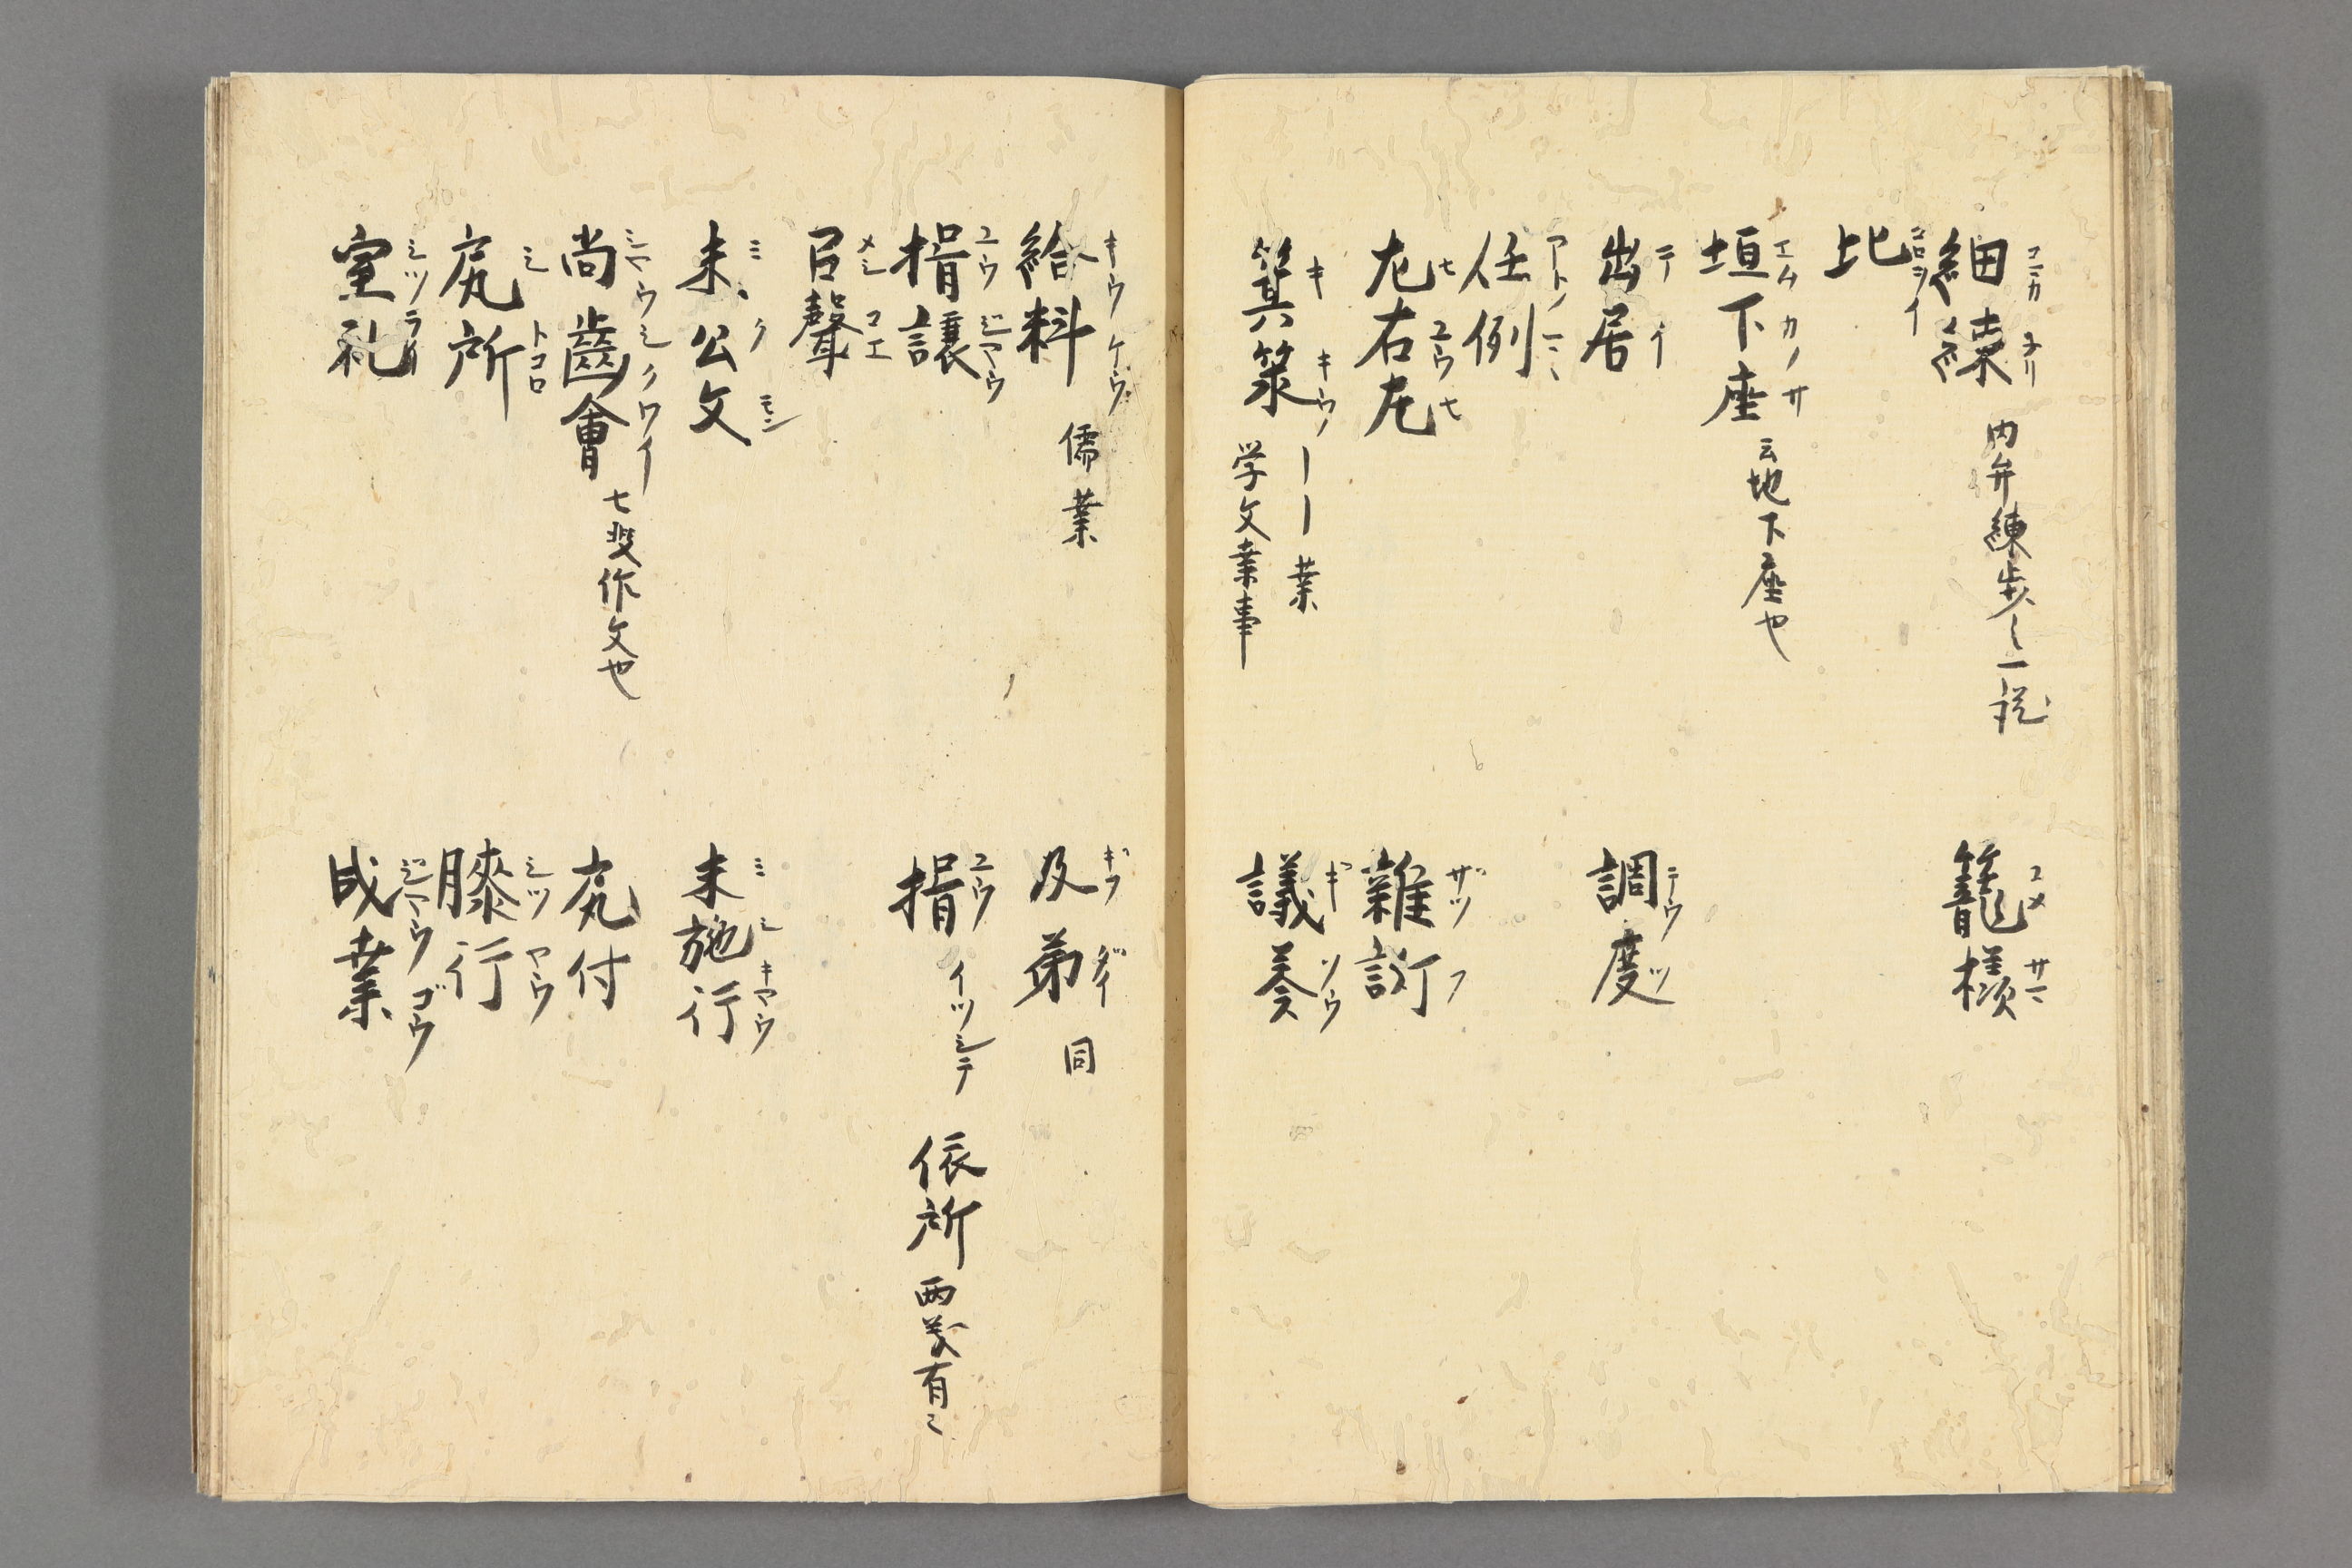 細練 コマカ ネリ 内弁練歩之一説
籠様 コメ サマ
比 コロヲイ
垣下座 エムカノサ 云地下座也
出居 テイ
調度 テウツ
任例 アトノマヽ
左右左 サユウサ
雑訴 ザツフ
箕箒 キ キウ 業
学文業事
議奏 ギ ソウ
給料 キウケウ 儒業
及第 ギフ ダイ 同
揖譲 ユウ ジヤウ
揖 ユウ イツシテ 依所 両義有之
召聲 メシ コエ
未公文 ミ ク モン
未施行 ミ シ キヤウ
尚齒會 シヤウシクワイ 七叟作文也
宛付
宛所 トコロ
膝行 シツ カウ
室礼 シツライ
成業 ジヤウ ゴウ